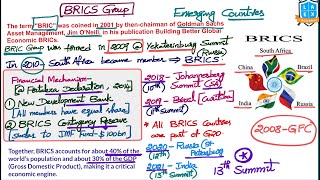 BRICS Group
Emerging Countries
The term "BRIC" was coined in 2001 by then-chairman of Goldman Sachs
Asset Management, Jim O'Neill, in his publication Building Better Global
Economic BRICs.
BRIC Group was formed in 2009 @ Yekaterinburg Summit
(Russia)
In 2010 → South Africa became member → BRICS
Financial Mechanism -
@ Fortaleza Declaration, 2014
1) New Development Bank
[All members have equal share]
2) BRICS Contingency Reserve
Similar to IMF Fund - $100bn
2018 - Johannesburg
Summit (SA)
2019 - Brazil
* All BRICS Countries
are part of G20
2020 - Russia (St.
(12th) Petersburg)
2021 - India
(13th Summit)
13th
Summit
BRICS
South Africa
Brazil
China
Russia
India
2008-GFC
Together, BRICS accounts for about 40% of the
world's population and about 30% of the GDP
(Gross Domestic Product), making it a critical
economic engine.